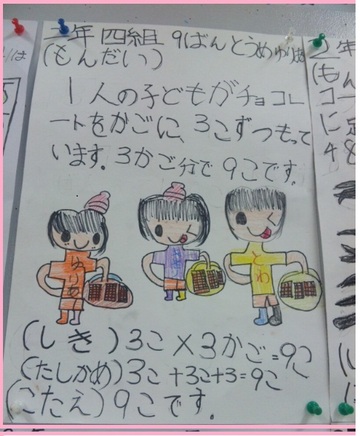 二年四組 9ばんとうめゆりあ
(もんだい)
1人の子どもがチョコレ
ートをかごに、3こずつもって
います。3かご分で9こです。
ゆりあ
とわ
(しき) 3こ×3かご=9こ
(たしかめ) 3こ+3こ+3=9こ
(こたえ) 9こです。